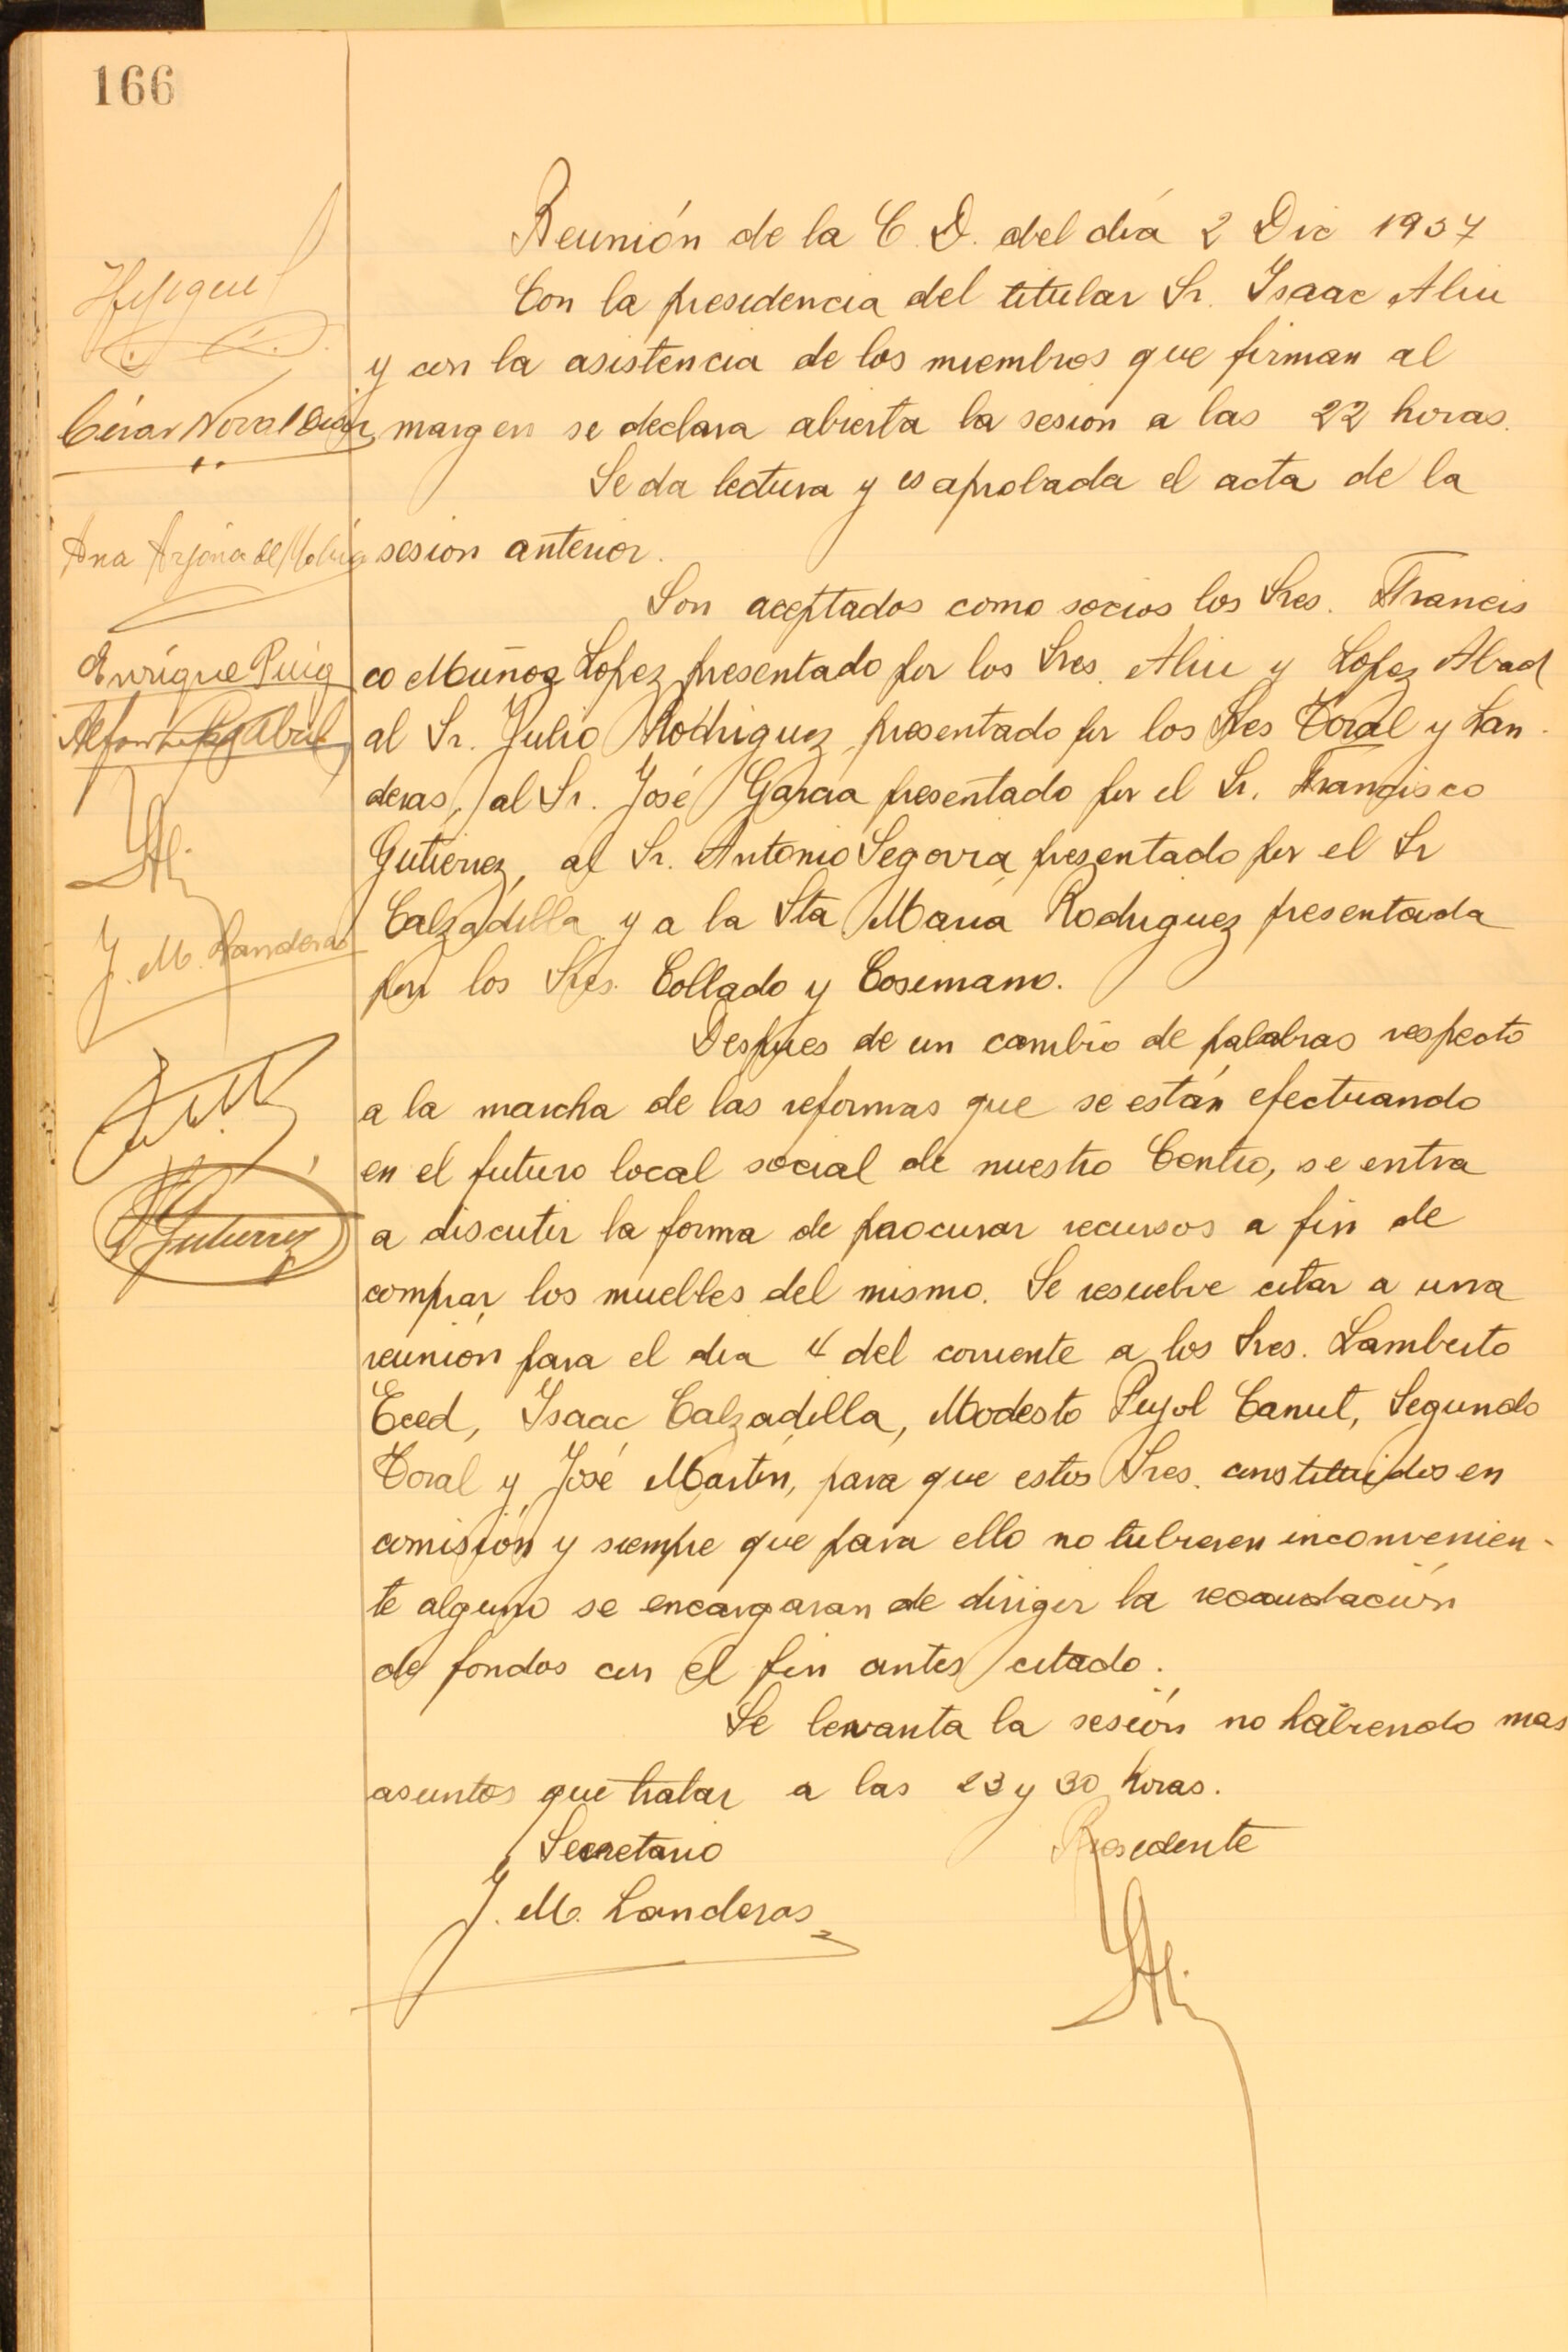 166
Reunión de la C. D. del día 2 Dic 1937
Con la presidencia del titular Sr. Isaac Aliu
y con la asistencia de los miembros que firman al
margen se declara abierta la sesion a las 22 horas.
Se da lectura y es aprobada el acta de la
sesion anterior.
Son aceptados como socios los Sres. Francis
co Muñoz Lopez presentado por los Sres. Aliu y Lopez Abad
al Sr. Julio Rodriguez presentado por los Sres Toral y Lan-
deras, al Sr. José Garcia presentado por el Sr. Francisco
Gutierrez, al Sr. Antonio Segovia presentado por el Sr
Calzadilla y a la Sta Maria Rodriguez presentada
por los Sres. Collado y Cosimano.
Despues de un cambio de palabras respecto
a la marcha de las reformas que se están efectuando
en el futuro local social de nuestro Centro, se entra
a discutir la forma de procurar recursos a fin de
comprar los muebles del mismo. Se resuelve citar a una
reunion para el dia 4 del corriente a los Sres. Lamberto
Eced, Isaac Calzadilla, Modesto Pujol Canut, Segundo
Toral y José Martin, para que estos Sres. constituidos en
comisión y siempre que para ello no tubieren inconvenien-
te alguno se encargaran de dirigir la recaudación
de fondos con el fin antes citado.
Se levanta la sesión no habiendo mas
asuntos que tratar a las 23 y 30 horas.
Secretario Presidente
J. M. Landeras
César Noval
Ana Arjona de
Enrique Puig
J. M. Landeras
Gutierrez